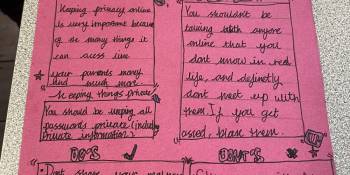 Keeping privacy online
is very important because
of the many things it
can acess like
your parents money
and much more
Keeping things private
You should be keeping all
passwords private (including
Private information)
You shouldn't be
talking with anyone
online that you
dont know in real
life, and definetly
dont meet up with
them. If you get
asked, block them.
DO'S
DONT'S
Dont share your